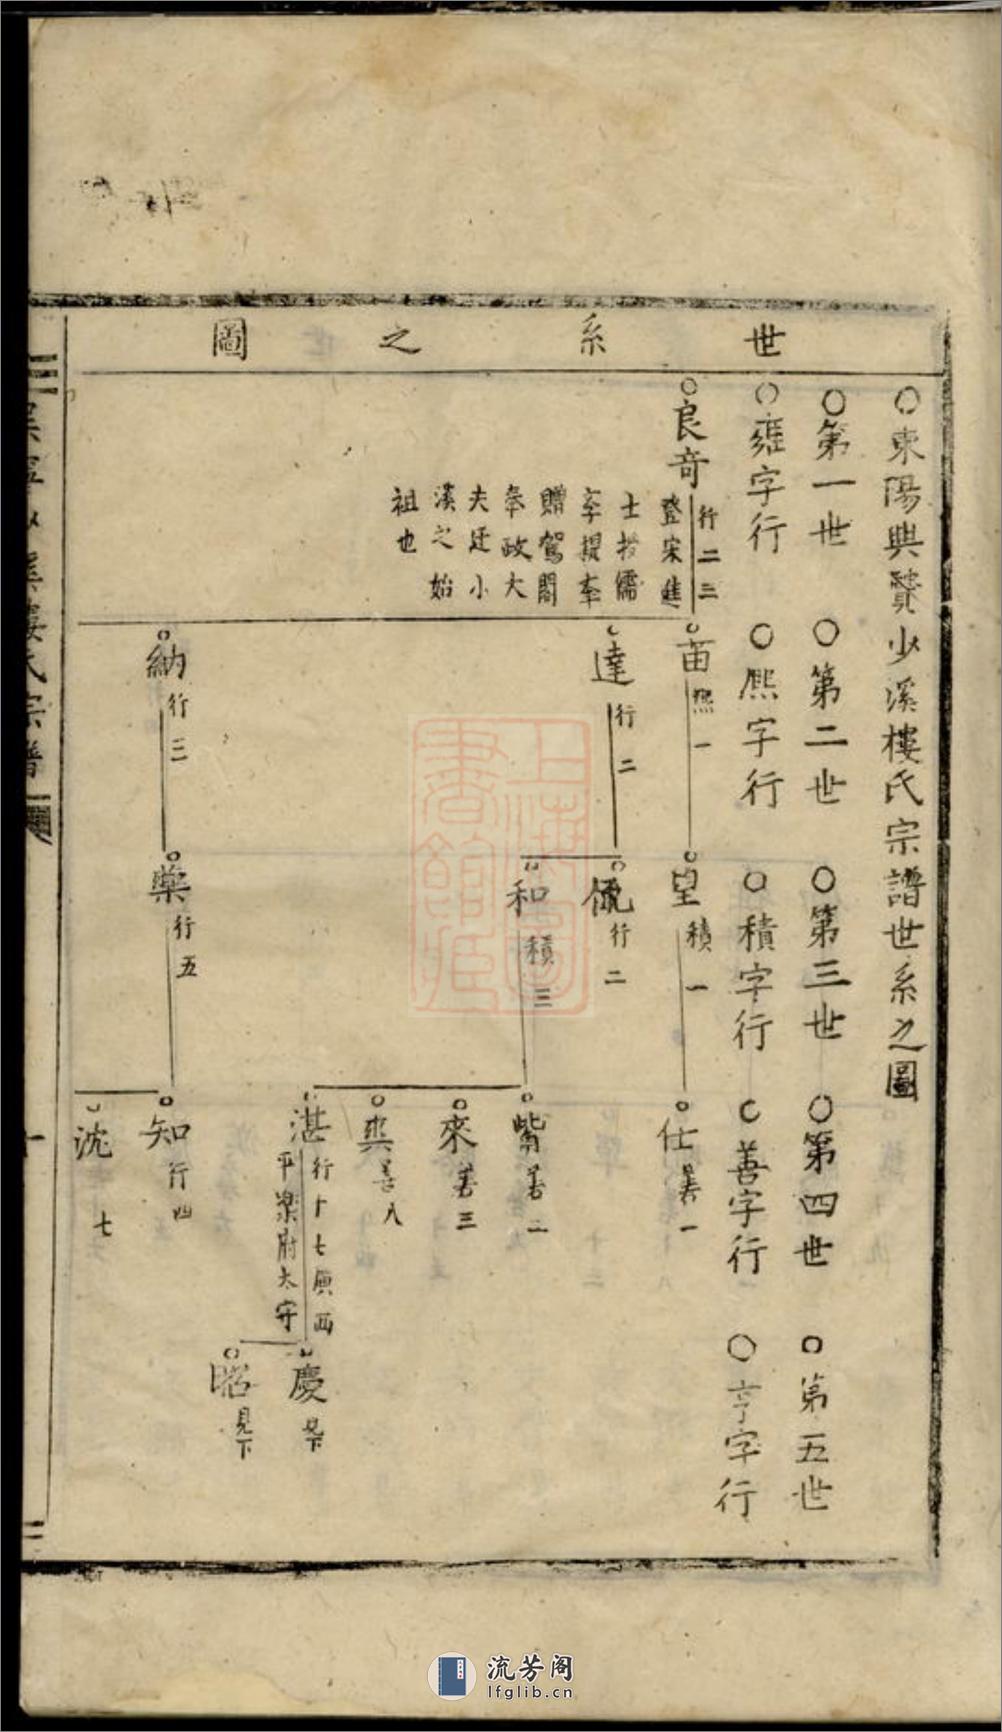 世系之圖
○東陽興賢少溪樓氏宗譜世系之圖
○第一世 ○第二世 ○第三世 ○第四世 ○第五世
○雍字行 ○熙字行 ○積字行 ○善字行 ○亨字行
○良奇
行二三
登宋進
士授儒
李提李
贈駕閣
奉政大
夫迁小
溪之始
祖也
○苗 熙一
○達 行二
○納 行三
○望 積一
○佩 行二
○和 積三
○藥 行五
○仕 善一
○紫 善二
○來 善三
○爽 善八
○湛
行十七廣西
平樂府太守
○知 行四
○沈 七
○慶 見下
○昭 見下
吳寧少溪樓氏宗譜
上海圖
書館藏
流芳阁
lfglib.cn